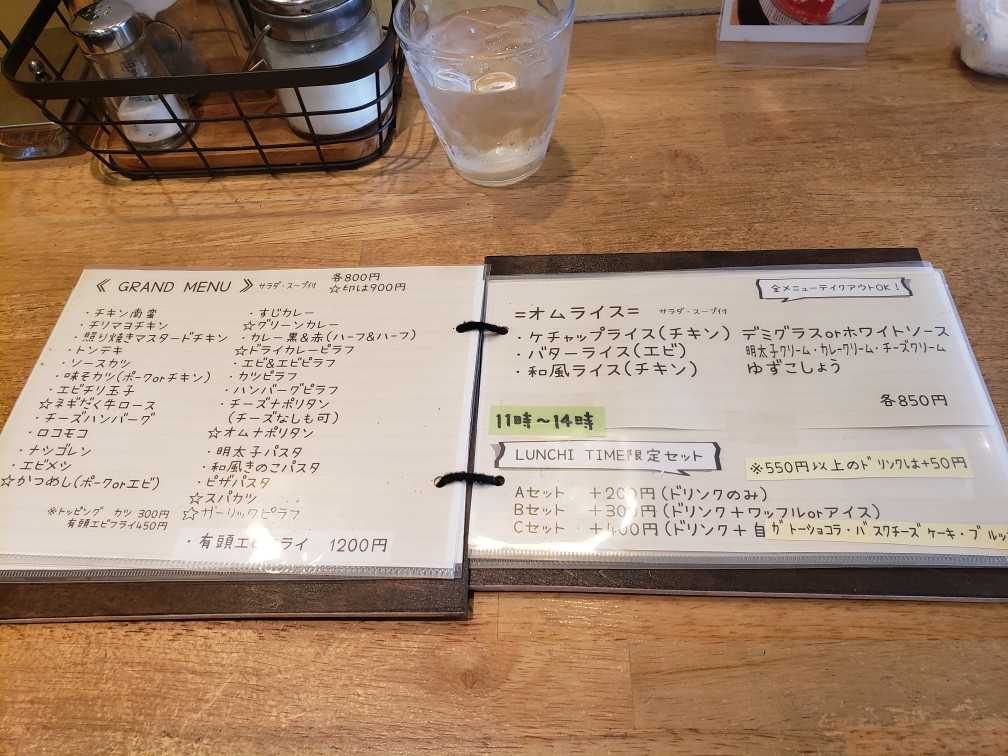 ≪ GRAND MENU ≫ サラダ・スープ付
各800円
☆印は900円
・チキン南蛮
・チリマヨチキン
・照り焼きマスタードチキン
・トンテキ
・ソースカツ
・味そカツ(ポークorチキン)
・エビチリ玉子
☆ネギだく牛ロース
・チーズハンバーグ
・ロコモコ
・ナシゴレン
・エビメシ
☆かつめし(ポークorエビ)
※トッピング カツ 300円
有頭エビフライ450円
・すじカレー
☆グリーンカレー
・カレー黒&赤(ハーフ&ハーフ)
☆ドライカレーピラフ
・エビ&エビピラフ
・カツピラフ
・ハンバーグピラフ
・チーズナポリタン
(チーズなしも可)
☆オムナポリタン
・明太子パスタ
・和風きのこパスタ
・ピザパスタ
☆スパカツ
☆ガーリックピラフ
・有頭エビフライ 1200円
全メニューテイクアウトOK!
=オムライス= サラダ・スープ付
・ケチャップライス(チキン)
・バターライス(エビ)
・和風ライス(チキン)
デミグラスorホワイトソース
明太子クリーム・カレークリーム・チーズクリーム
ゆずこしょう
各850円
11時～14時
LUNCHI TIME限定セット
※550円以上のドリンクは+50円
Aセット +200円(ドリンクのみ)
Bセット +300円(ドリンク+ワッフルorアイス)
Cセット +400円(ドリンク+自 ガトーショコラ・バスクチーズケーキ・ブルッ